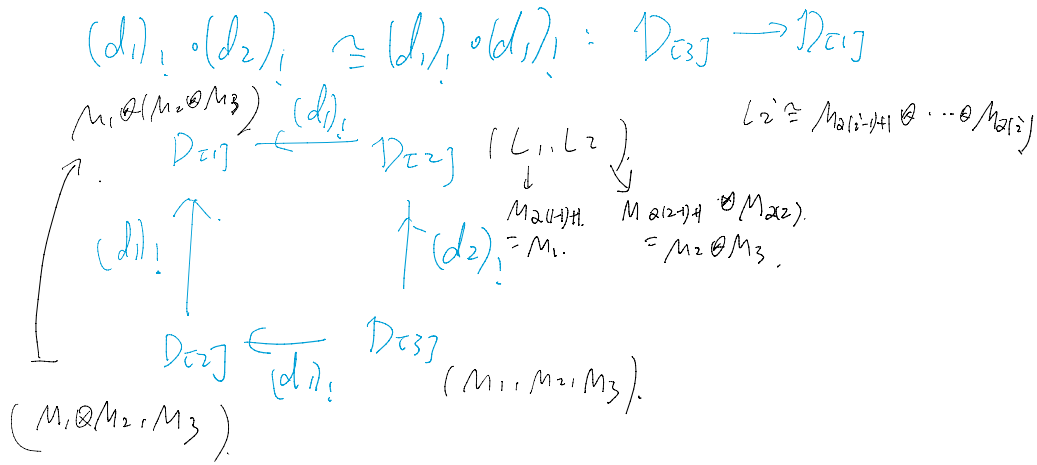 (d₁)! ∘(d₂)! ≅ (d₁)! ∘(d₁)! : D[3] → D[1]
M₁⊗(M₂⊗M₃)
(d₁)!
D[1] ← D[2] (L₁, L₂).
Lᵢ ≅ M_{α(i-1)+1} ⊗ ⋯ ⊗ M_{α(i)}
M_{α(1-1)+1} M_{α(2-1)+1} ⊗ M_{α(2)}.
= M₁. = M₂ ⊗ M₃.
(d₁)! (d₂)!
D[2] ← D[3]
(d₁)!
(M₁, M₂, M₃).
(M₁⊗M₂, M₃).